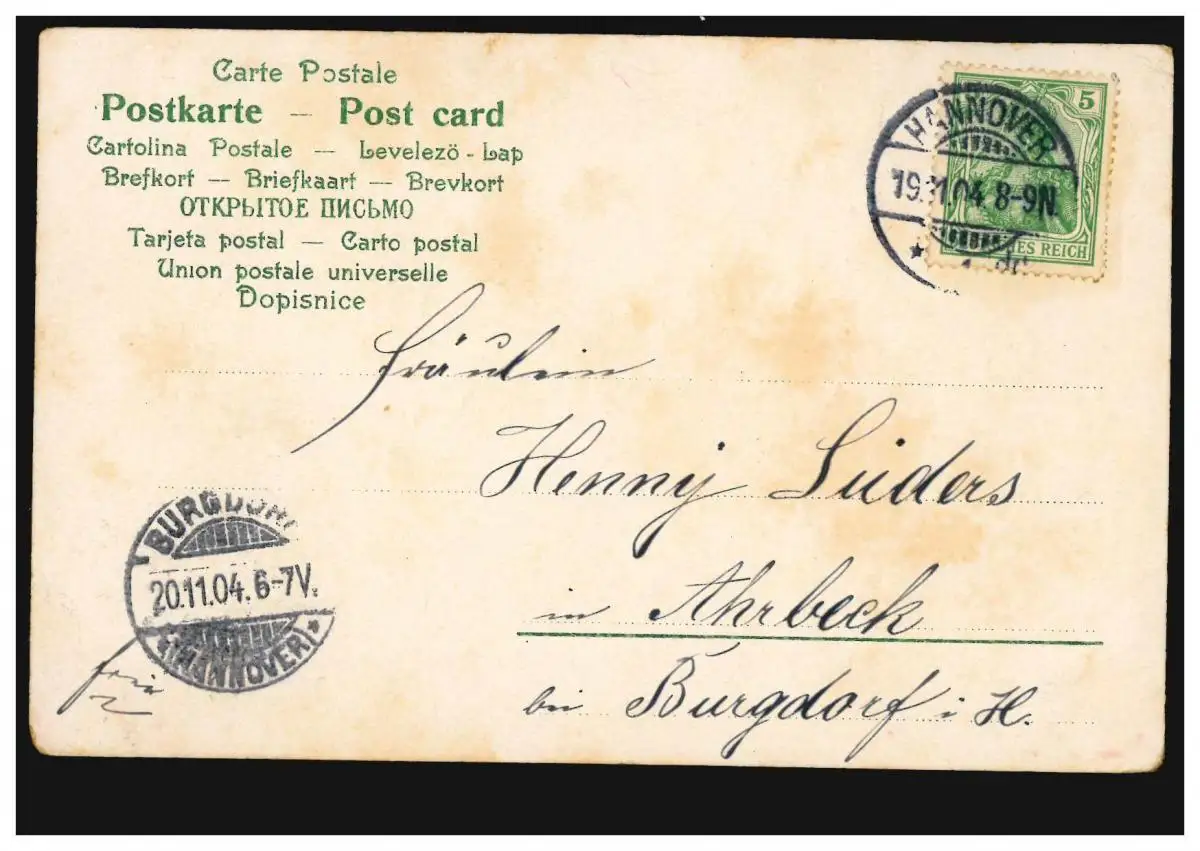 Carte Postale
Postkarte — Post card
Cartolina Postale — Levelezö-Lap
Brefkort — Briefkaart — Brevkort
ОТКРЫТОЕ ПИСЬМО
Tarjeta postal — Carto postal
Union postale universelle
Dopisnice
5
HANNOVER
19.11.04. 8-9N.
ES REICH
Fräulein
Henny Lüders
in Ahrbeck
bei Burgdorf i. H.
BURGDORF
20.11.04. 6-7V.
(HANNOVER)